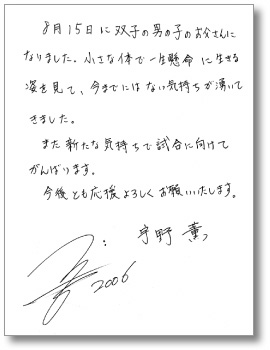 8月15日に双子の男の子のお父さんに
なりました。小さな体で一生懸命に生きる
姿を見て、今までにはない気持ちが湧いて
きました。
また新たな気持ちで試合に向けて
がんばります。
今後とも応援よろしくお願いいたします。
宇野 薫
2006